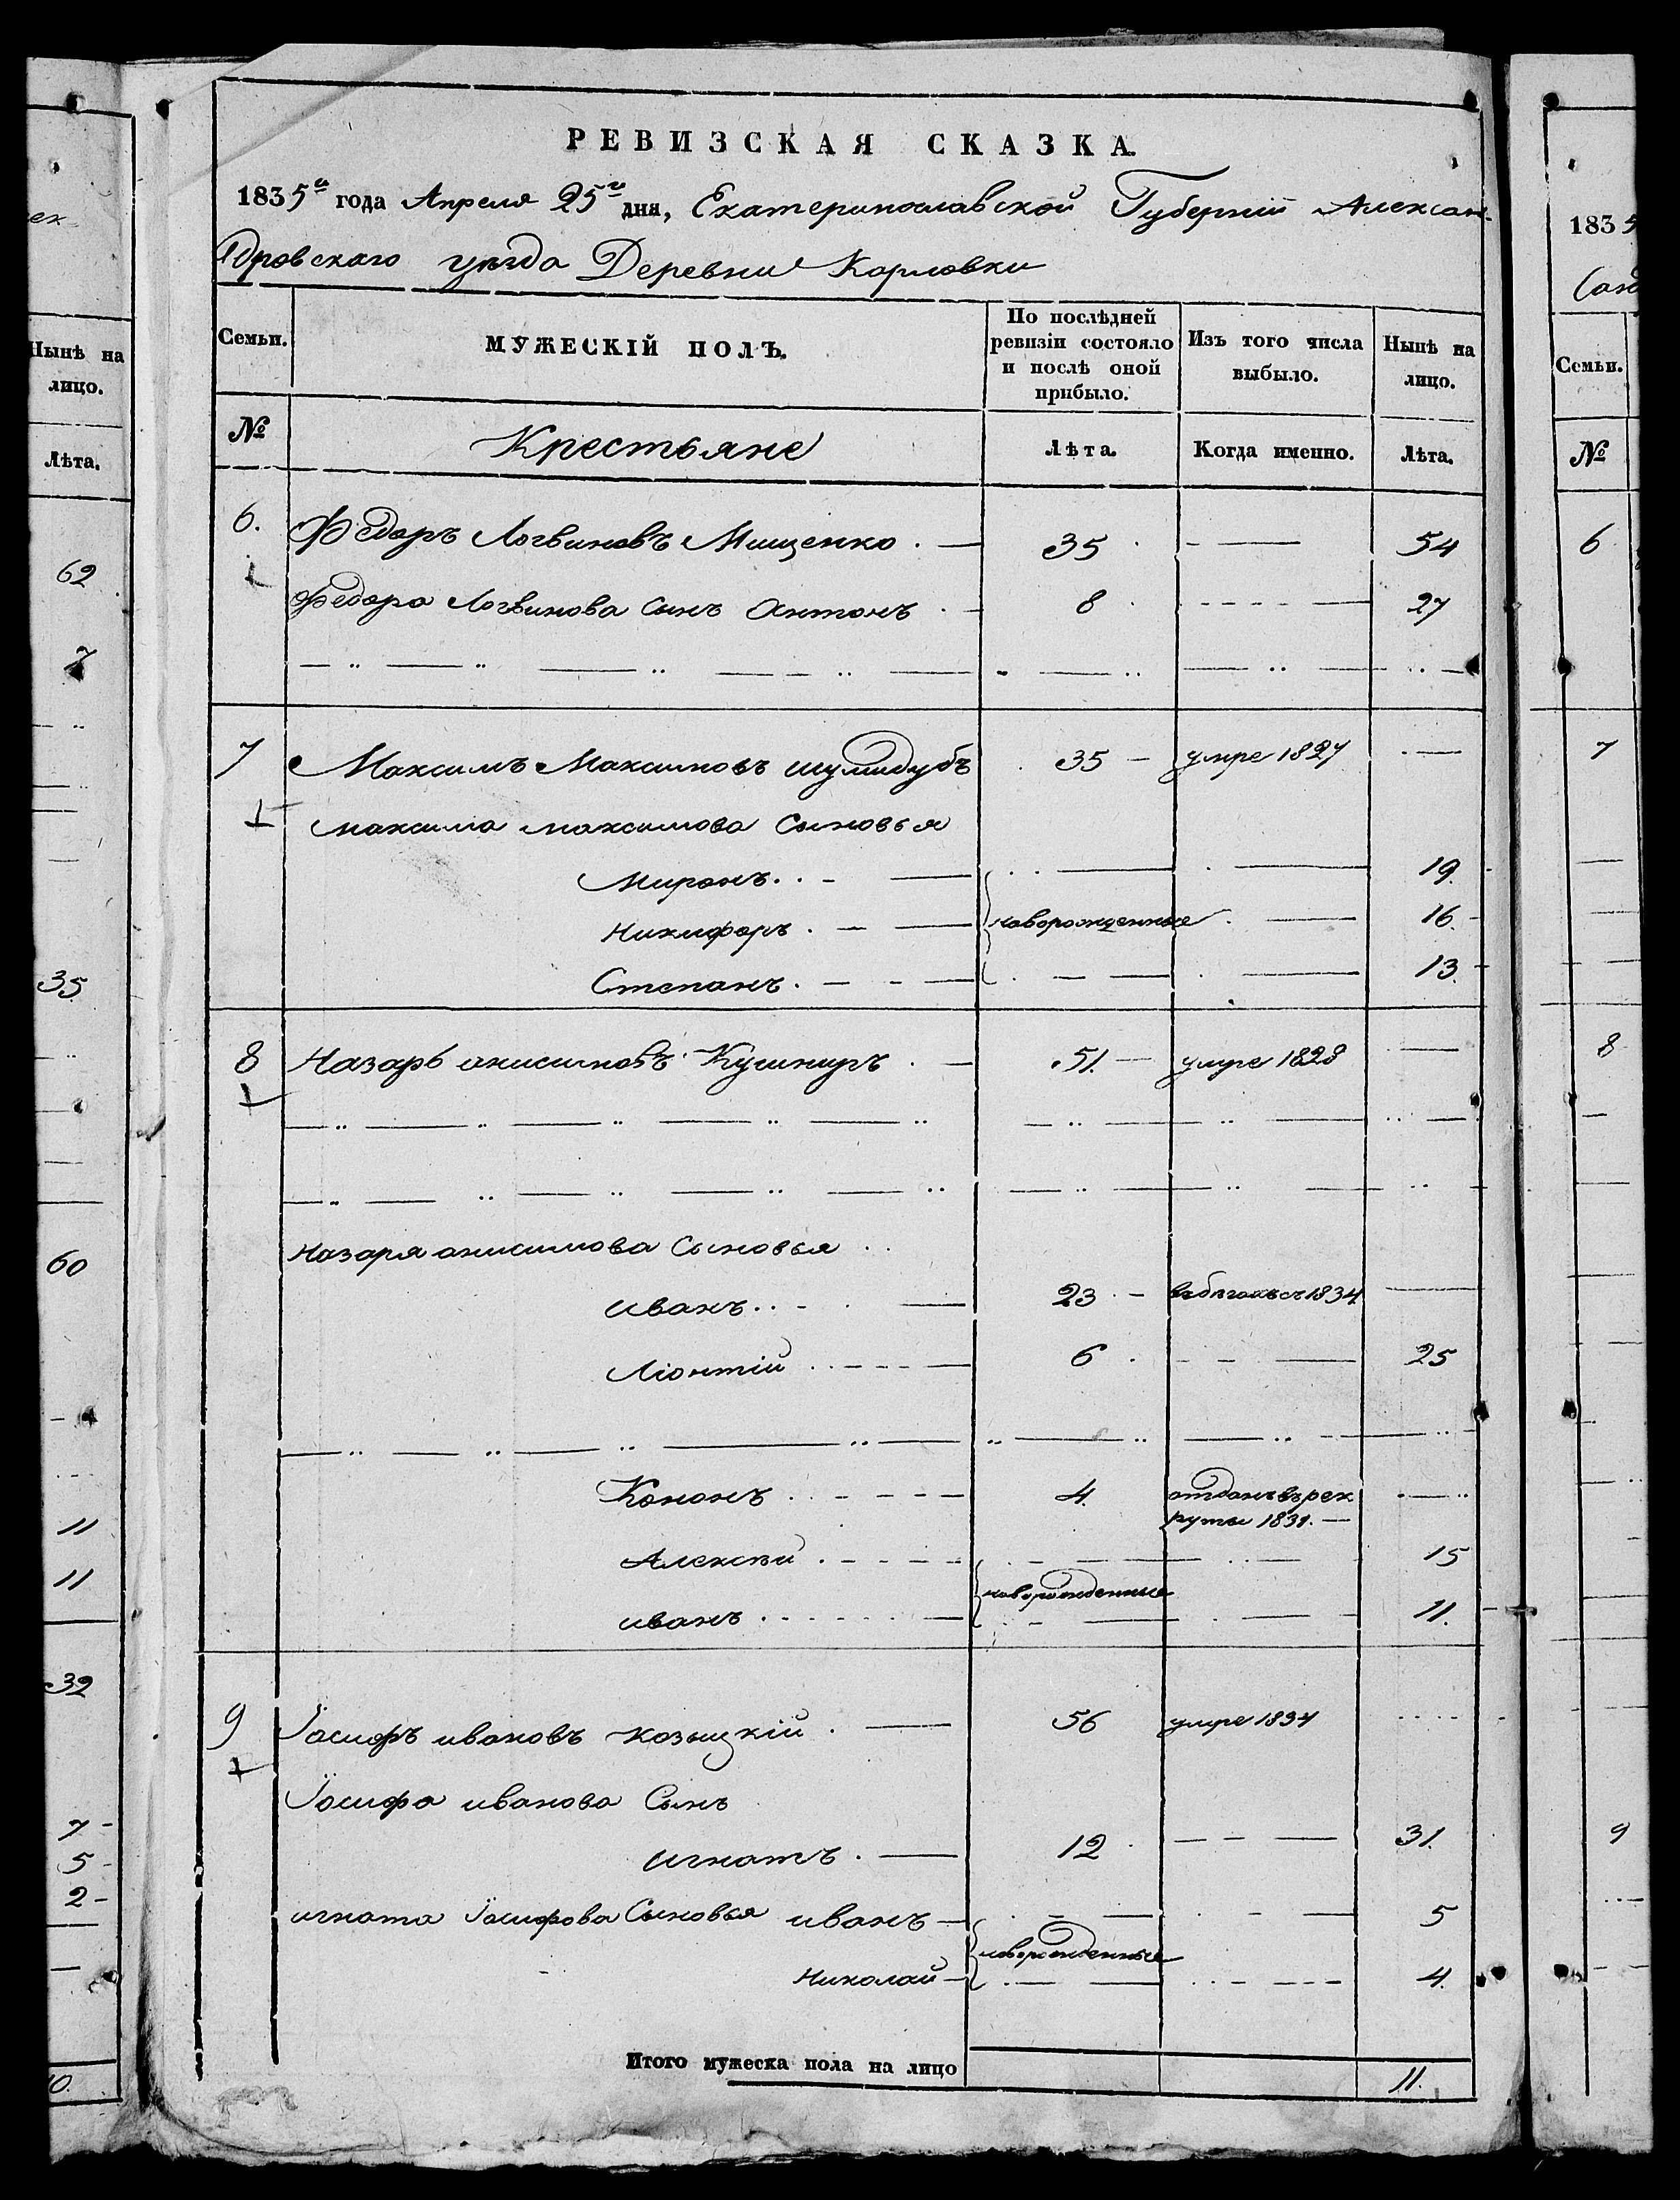 РЕВИЗСКАЯ СКАЗКА.
1835го года Апреля 25го дня, Екатеринославской Губерніи Алексан-
дровскаго уезда Деревни Карловки
Семьи. МУЖЕСКІЙ ПОЛЪ. По послѣдней ревизіи состояло и послѣ оной прибыло. Изъ того числа выбыло. Нынѣ на лицо.
№ Крестьяне Лѣта. Когда именно. Лѣта.
6. Федоръ Логвиновъ Мищенко 35 54
Федора Логвинова сынъ антонъ 8 27
7 Максимъ Максимовъ шулидубъ 35 умре 1827
максима максимова Сыновья
Миронъ 19.
Никифоръ новорожденные 16.
Степанъ 13.
8 Назаръ анисимовъ Кушниръ 51. умре 1828
Назаря анисимова Сыновья
иванъ 23 1834
Ліонтій 6 25
Кононъ 4. отданъ въ рек
руты 1831.
Алексѣй 15
новорожденные
иванъ 11.
9 Іосифъ ивановъ козыцкій 56 умре 1834
Іосифа иванова Сынъ
игнатъ 12 31.
игната Іосифова Сыновья иванъ 5
новорожденные
Николай 4.
Итого мужеска пола на лицо 11.
ек
Нынѣ на
лицо.
Лѣта.
62
7
35
60
11
11
32
7
5
2
10.
1835
Семьи.
№
6
7
8
9